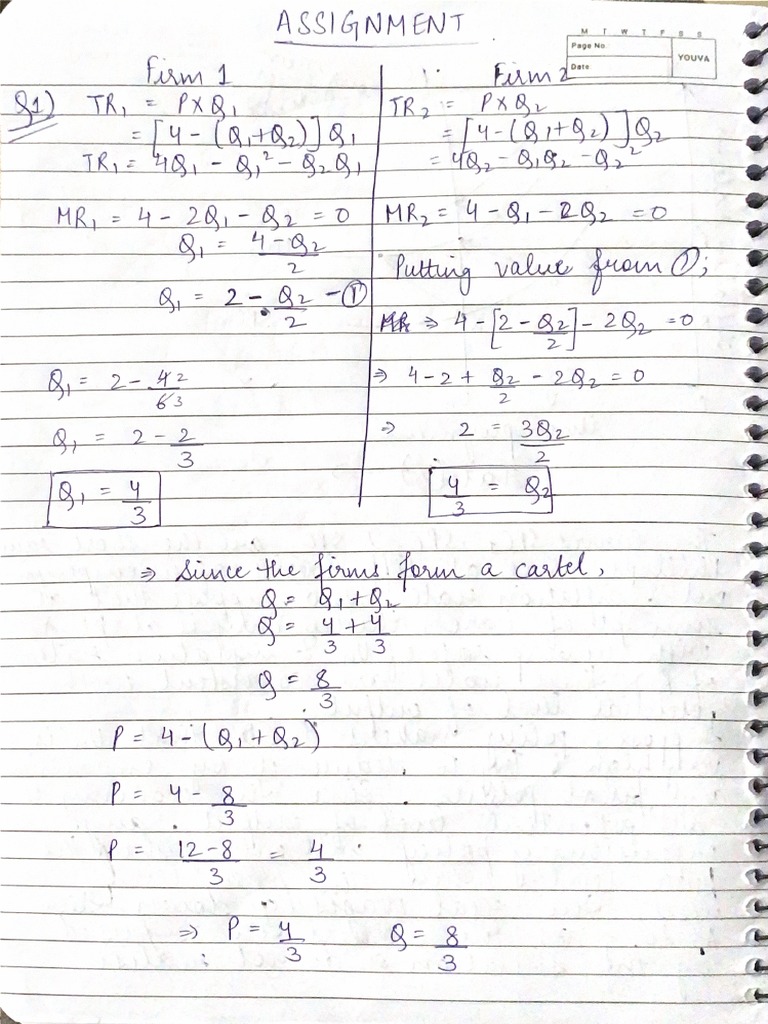 ASSIGNMENT
M T W T F S S
Page No.
Date
YOUVA
Firm 1
Q1) TR₁ = P×Q₁
= [4-(Q₁+Q₂)]Q₁
TR₁ = 4Q₁ - Q₁² - Q₂Q₁
MR₁ = 4-2Q₁-Q₂ = 0
Q₁ = (4-Q₂)/2
Q₁ = 2 - Q₂/2 - ①
Q₁ = 2 - 4 2/6 3
Q₁ = 2 - 2/3
Q₁ = 4/3
Firm 2
TR₂ = P×Q₂
= [4-(Q₁+Q₂)]Q₂
= 4Q₂ - Q₁Q₂ - Q₂²
MR₂ = 4-Q₁-2Q₂ = 0
Putting value from ①;
⇒ 4-[2-Q₂/2]-2Q₂ = 0
⇒ 4-2+Q₂/2-2Q₂ = 0
⇒ 2 = 3Q₂/2
4/3 = Q₂
⇒ Since the firms form a cartel,
Q = Q₁+Q₂
Q = 4/3+4/3
Q = 8/3
P = 4-(Q₁+Q₂)
P = 4-8/3
P = (12-8)/3 = 4/3
⇒ P = 4/3 Q = 8/3